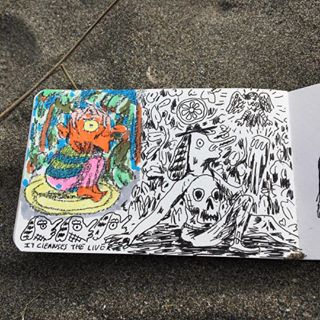 IT CLEANSES THE LIVER